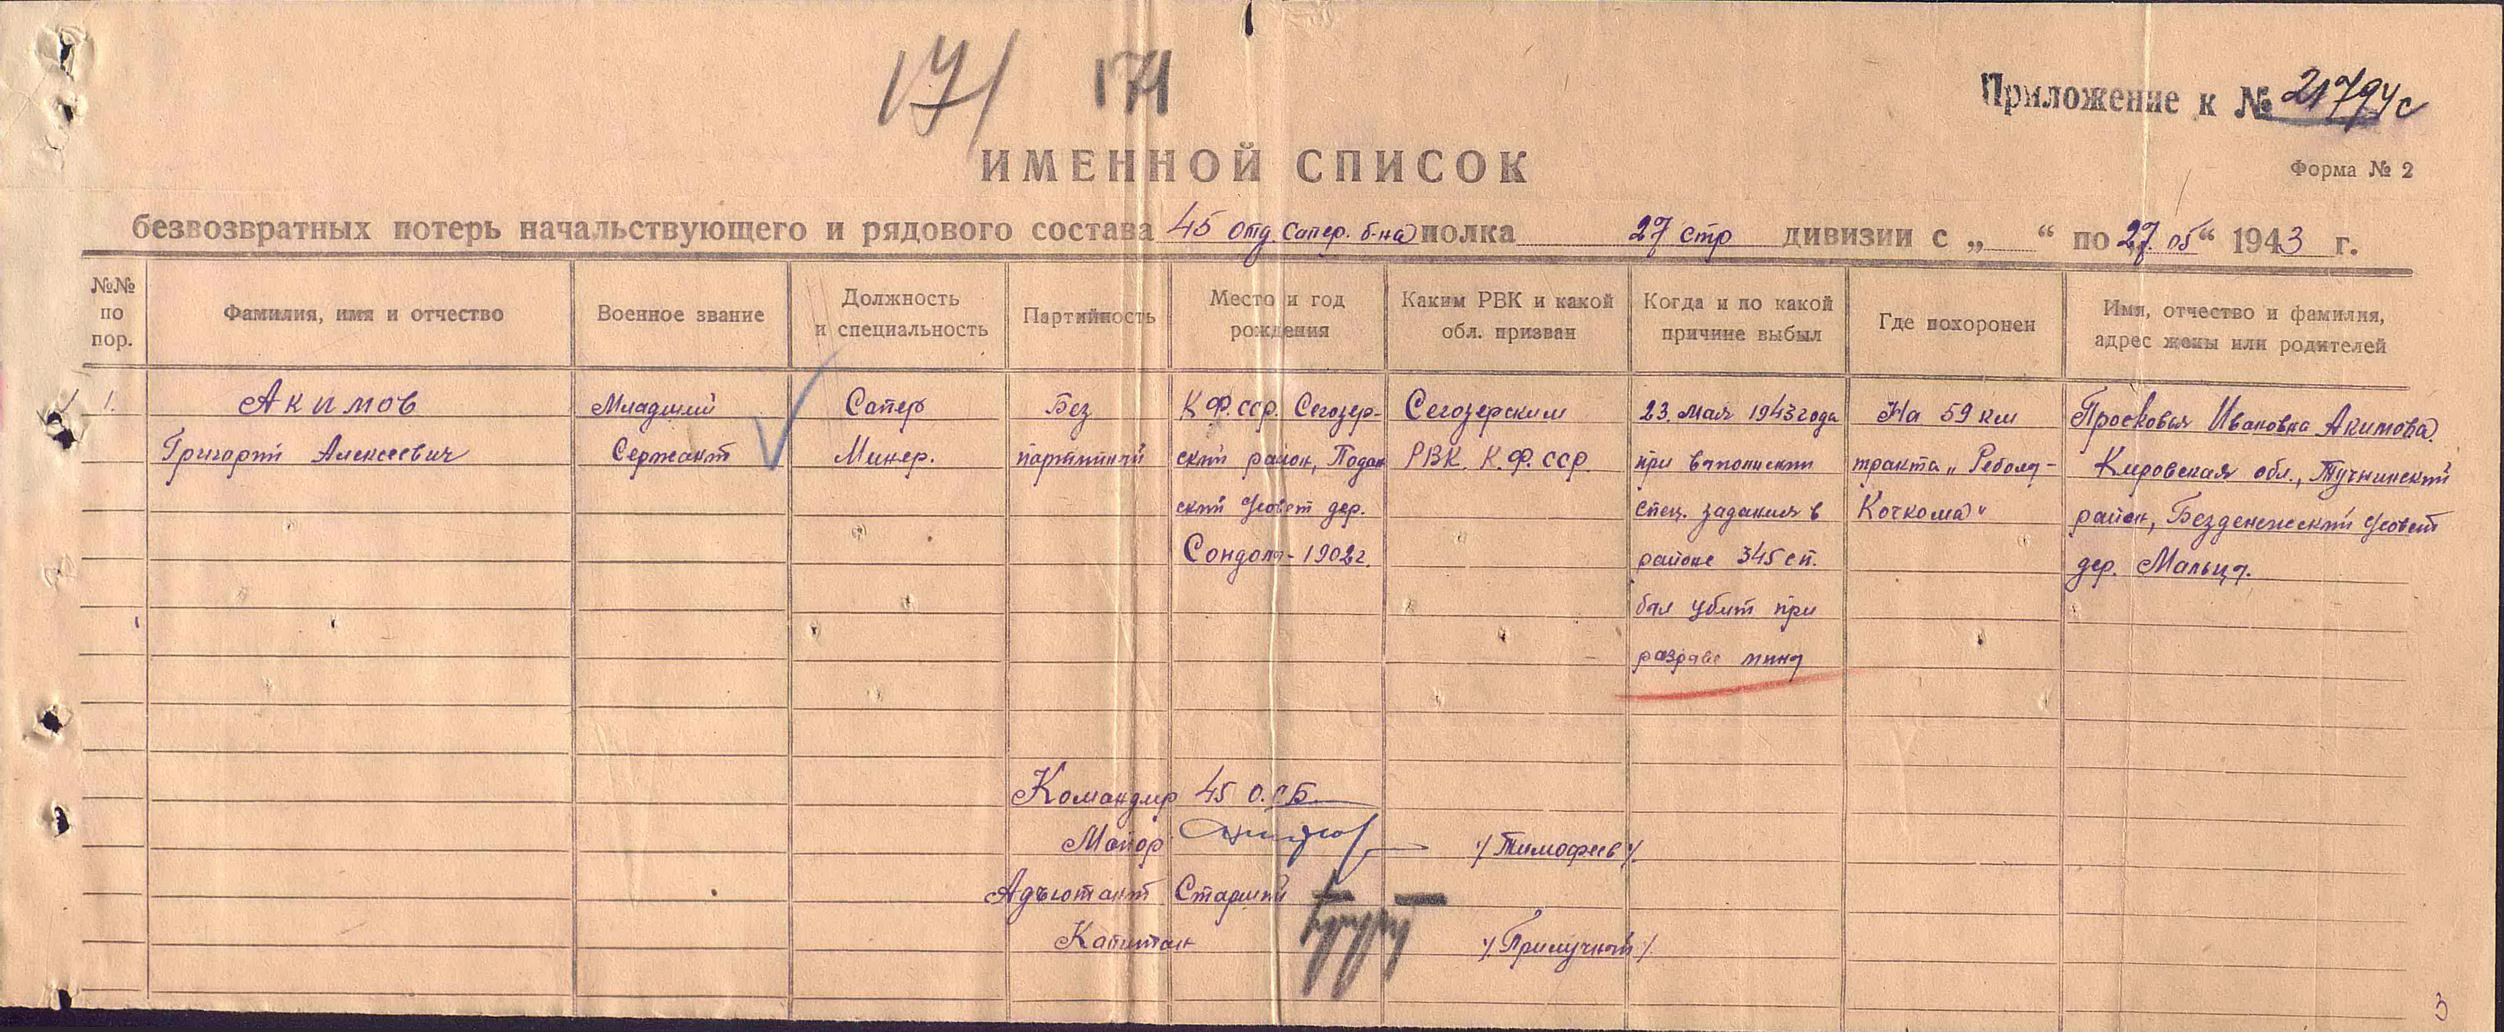 171 171
Приложение к № 21794с
ИМЕННОЙ СПИСОК
Форма № 2
безвозвратных потерь начальствующего и рядового состава 45 отд. сапер. б-на полка 27 стр дивизии с „ “ по 27. 05 “ 1943 г.
№№ по пор.
Фамилия, имя и отчество
Военное звание
Должность и специальность
Партийность
Место и год рождения
Каким РВК и какой обл. призван
Когда и по какой причине выбыл
Где похоронен
Имя, отчество и фамилия, адрес жены или родителей
1.
Акимов
Григорий Алексеевич
Младший
Сержант
Сапер
Минер.
Без
партийный
К.Ф.ССР. Сегозер-
ский район, Падан
ский с/совет дер.
Сондолы - 1902 г.
Сегозерским
РВК К.Ф.ССР
23. мая 1943 года
при выполнении
спец. задания в
районе 345 сп.
был убит при
разрыве мины
На 59 км
тракта „ Реболы -
Кочкома "
Просковья Ивановна Акимова
Кировская обл.,
район, Безденежский с/совет
дер. Мальцы.
Командир 45 О.С.Б
Майор /Тимофеев/
Адъютант Старший
Капитан /Прилучный/
3